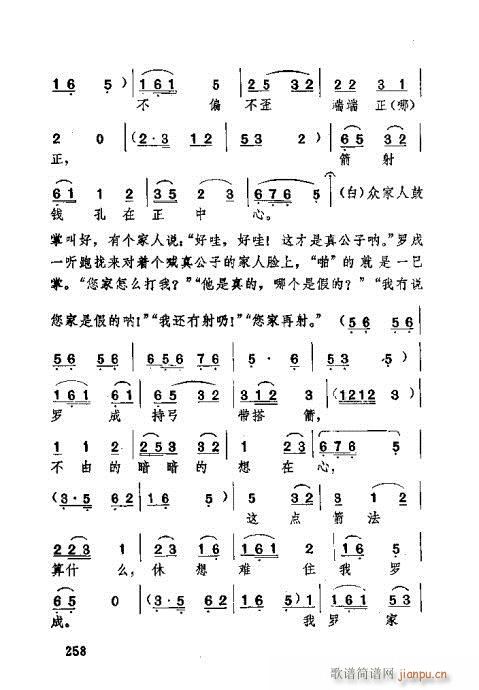 1 6 5 ) | 1 6 1 5 | 2 5 3 2 | 2 2 3 1 |
不 偏 不 歪 端端 正(哪)
2 0 | (2·3 1 2 | 5 3 2 ) | 6 5 3 2 |
正, 箭 射
6 1 1 2 | 3 5 2 3 | 6 7 6 5 | (白)众家人鼓
钱 孔 在 正 中 心。
掌叫好,有个家人说:“好哇,好哇!这才是真公子呐。”罗成
一听跑拢来对着个贼真公子的家人脸上,“啪”的就是一巴
掌。“您家怎么打我?”“他是真的,哪个是假的?”“我冇说
您家是假的呐!”“我还冇射哟!”“您家再射。” (5 6 5 6 |
5 6 5 6 | 6 5 6 7 6 | 5 · 6 | 5 3 5 ) |
1 6 1 6 1 | 1 6 5 3 5 | 3 1 2 3 | (1212 3 ) |
罗 成 持弓 带搭 箭,
1 1 2 | 2 5 3 3 2 | 1 2 3 | 6 7 6 5 |
不 由 的 暗 暗 的 想 在 心,
(3·5 6 2 | 1 6 5 ) | 5 3 2 | 3 1 2 |
这 点 箭 法
2 2 3 1 | 2 3 2 | 1 6 1 1 | 1 6 5 |
算什 么,休 想 难 住 我 罗
6 5 0 | (3·5 6 2 | 1 6 5 1) 1 | 1 6 1 5 3 |
成。 我 罗 家
258
歌谱简谱网
jianpu.cn